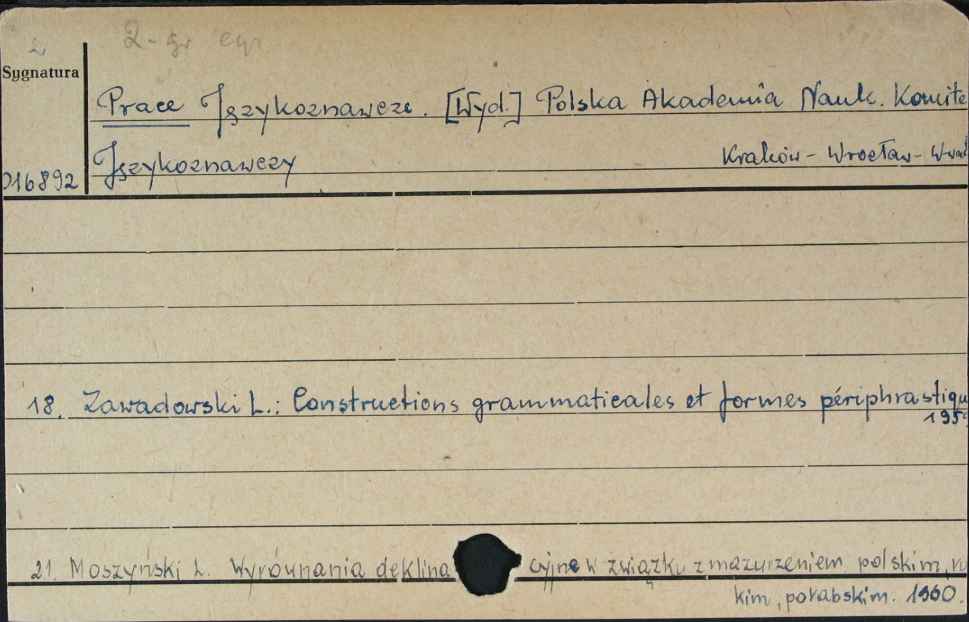 2-
Sygnatura
Prace Językoznawcze. [Wyd.] Polska Akademia Nauk. Komite
Językoznawczy Kraków - Wrocław - W-wa
016892
18. Zawadowski L.: Constructions grammaticales et formes périphrastiqu
195
21. Moszyński L. Wyrównania deklinacyjne w związku z mazurzeniem polskim,
kim, połabskim. 1960.